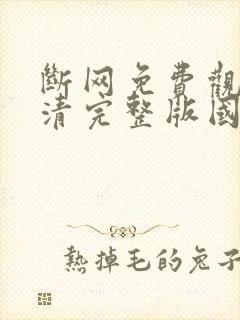 斷网免費觀
清完整版國
熱掉毛的兔子